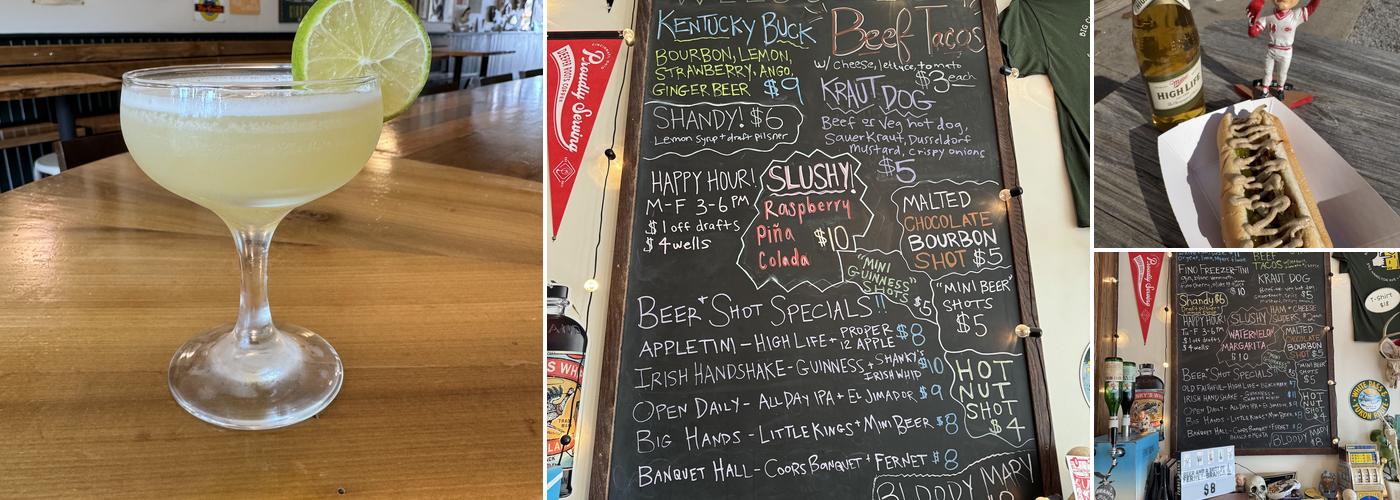 KENTUCKY BUCK
BOURBON, LEMON,
STRAWBERRY, ANGO,
GINGER BEER $9
SHANDY! $6
Lemon syrup + draft pilsner
HAPPY HOUR!
M-F 3-6PM
$1 off drafts
$4 wells
Beef Tacos
w/ cheese, lettuce, tomato
$3 each
KRAUT DOG
Beef or Veg hot dog,
Sauerkraut, Dusseldorf
mustard, crispy onions
$5
SLUSHY!
Raspberry
Piña
Colada
$10
MALTED
CHOCOLATE
BOURBON
SHOT $5
"MINI
GUINNESS"
SHOTS
$5
"MINI BEER"
SHOTS
$5
BEER + SHOT SPECIALS!!
APPLETIM - HIGH LIFE + PROPER 12 APPLE $8
IRISH HANDSHAKE - GUINNESS + SHANKY'S IRISH WHIP $10
OPEN DAILY - ALL DAY IPA + EL JIMADOR $9
BIG HANDS - LITTLE KINGS + MINI BEER $8
BANQUET HALL - COORS BANQUET + FERNET $8
HOT
NUT
SHOT
$4
BLOODY MARY
Proudly Serving
Miller
HIGH LIFE
BEEF
TACOS
KRAUT DOG
$5
$10
Shandy $6
HAPPY HOUR!
$1 off drafts
$4 wells
SLUSHY
WATERMELON
MARGARITA
$10
HAM + CHEESE
SLIDERS
MALTED
CHOCOLATE
BOURBON
SHOT $5
"MINI BEER"
SHOTS
$5
BEER + SHOT SPECIALS
OLD FAITHFUL - HIGH LIFE +
IRISH HANDSHAKE - GUINNESS +
OPEN DAILY - ALL DAY IPA + EL JIMADOR $9
BIG HANDS - LITTLE KINGS + MINI BEER $8
BANQUET HALL - COORS BANQUET + FERNET
HOT
NUT
SHOT
$4
BLOODY MARY
T-SHIRT
$8